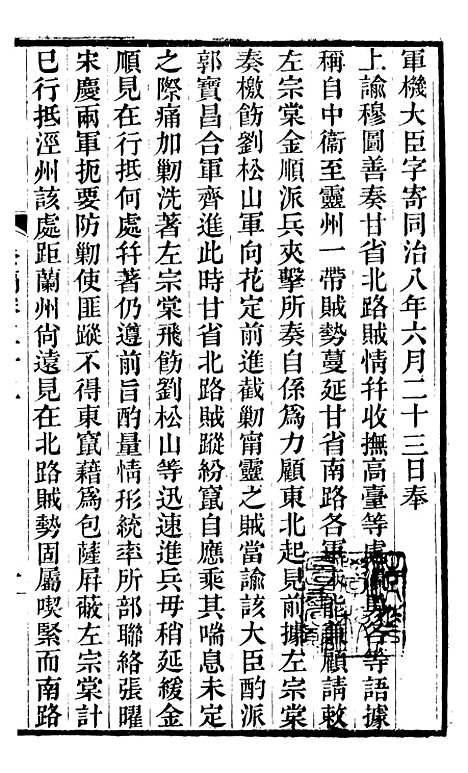 軍機大臣字寄同治八年六月二十三日奉
上諭穆圖善奏甘省北路賊情幷收撫高臺等處各等語據
稱自中衞至靈州一帶賊勢蔓延甘省南路各軍能兼顧請敕
左宗棠金順派兵夾擊所奏自係爲力顧東北起見前據左宗棠
奏檄飭劉松山軍向花定前進截剿甯靈之賊當諭該大臣酌派
郭寶昌合軍齊進此時甘省北路賊蹤紛竄自應乘其喘息未定
之際痛加剿洗著左宗棠飛飭劉松山等迅速進兵毋稍延緩金
順見在行抵何處幷著仍遵前旨酌量情形統率所部聯絡張曜
宋慶兩軍扼要防剿使匪蹤不得東竄藉爲包薩屛蔽左宗棠計
已行抵涇州該處距蘭州尙遠見在北路賊勢固屬喫緊而南路